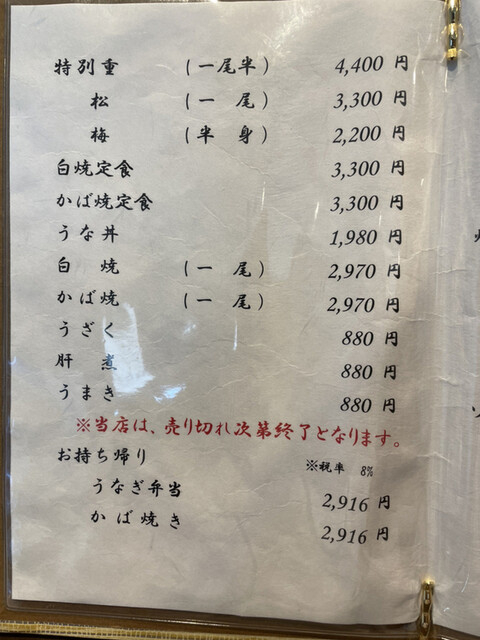 特別重 (一尾半) 4,400 円
松 (一 尾) 3,300 円
梅 (半 身) 2,200 円
白焼定食 3,300 円
かば焼定食 3,300 円
うな丼 1,980 円
白 焼 (一 尾) 2,970 円
かば焼 (一 尾) 2,970 円
うざく 880 円
肝 煮 880 円
うまき 880 円
※当店は、売り切れ次第終了となります。
お持ち帰り ※税率 8%
うなぎ弁当 2,916 円
かば焼き 2,916 円